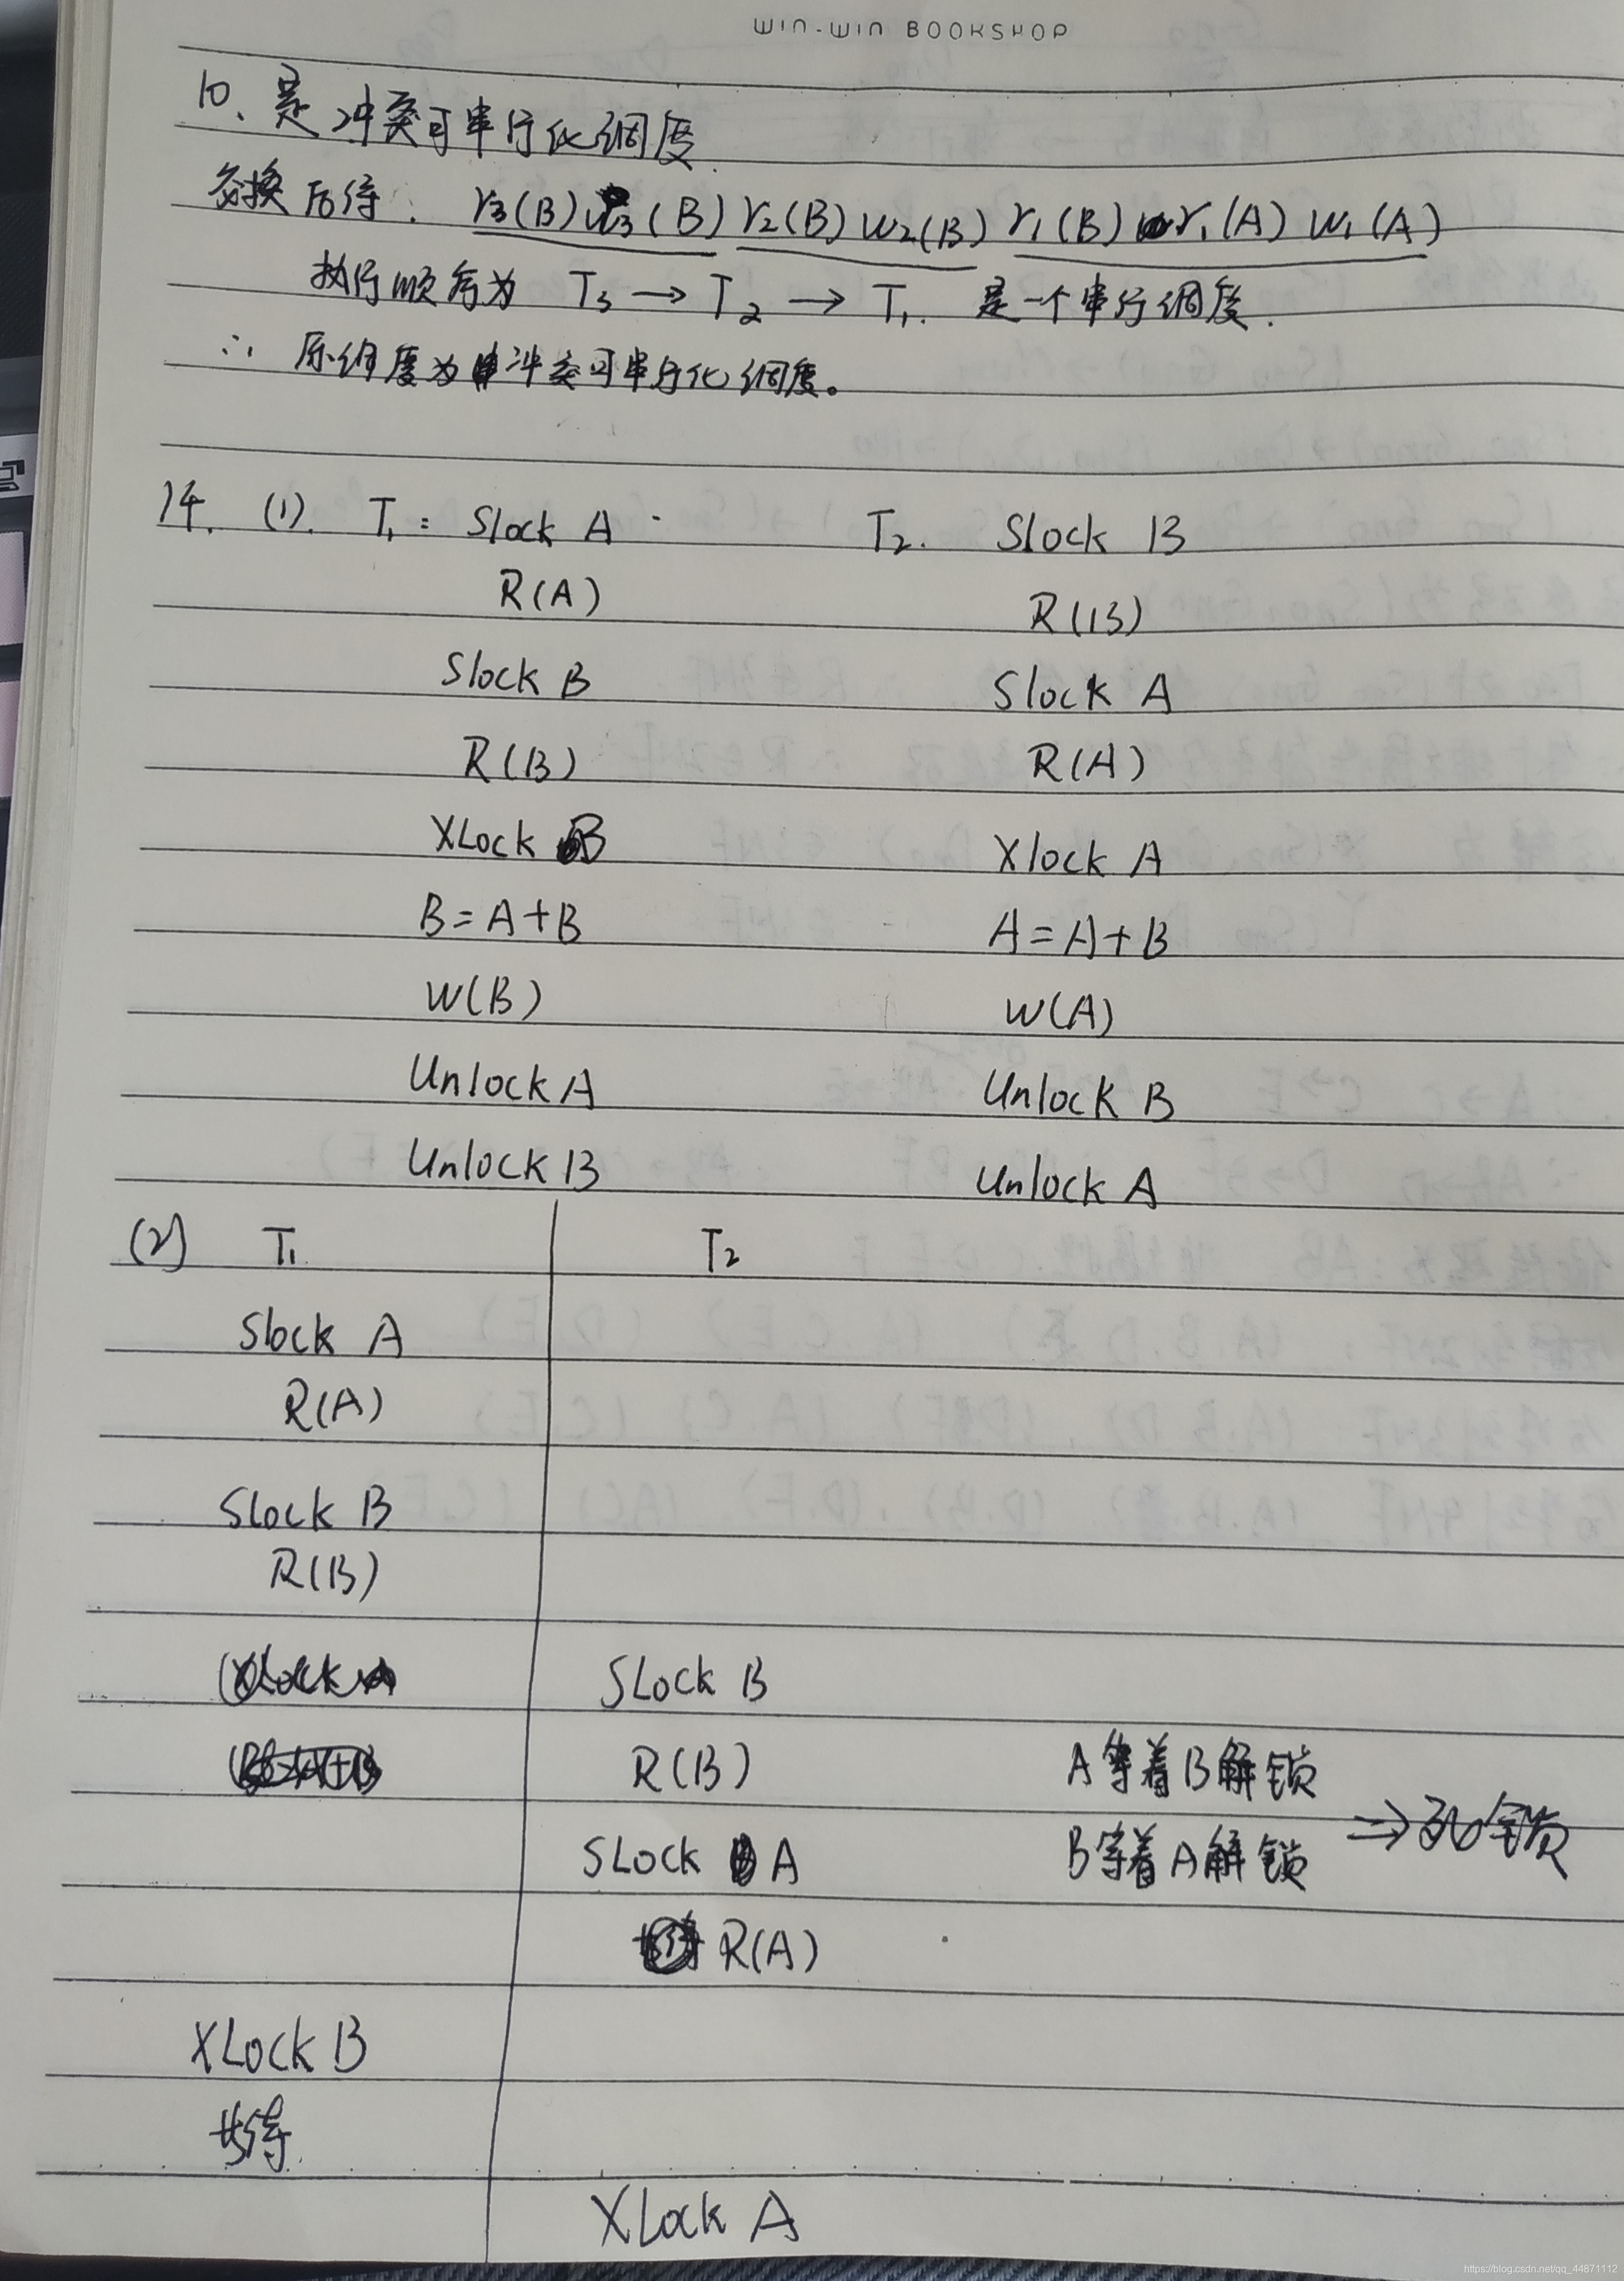 WIN-WIN BOOKSHOP
10、是冲突可串行化调度.
交换后得. r3(B) w3(B) r2(B) w2(B) r1(B) r1(A) w1(A)
执行顺序为 T3 → T2 → T1. 是一个串行调度.
∴ 原调度为冲突可串行化调度。
14. (1). T1: Slock A T2. Slock B
R(A) R(B)
Slock B Slock A
R(B) R(A)
XLock B Xlock A
B=A+B A=A+B
W(B) W(A)
Unlock A Unlock B
Unlock B Unlock A
(2) T1 T2
Slock A
R(A)
Slock B
R(B)
SLock B
R(B) A等着B解锁
SLock A B等着A解锁 ⇒ 死锁
R(A)
XLock B
等待
XLock A
https://blog.csdn.net/qq_44871112